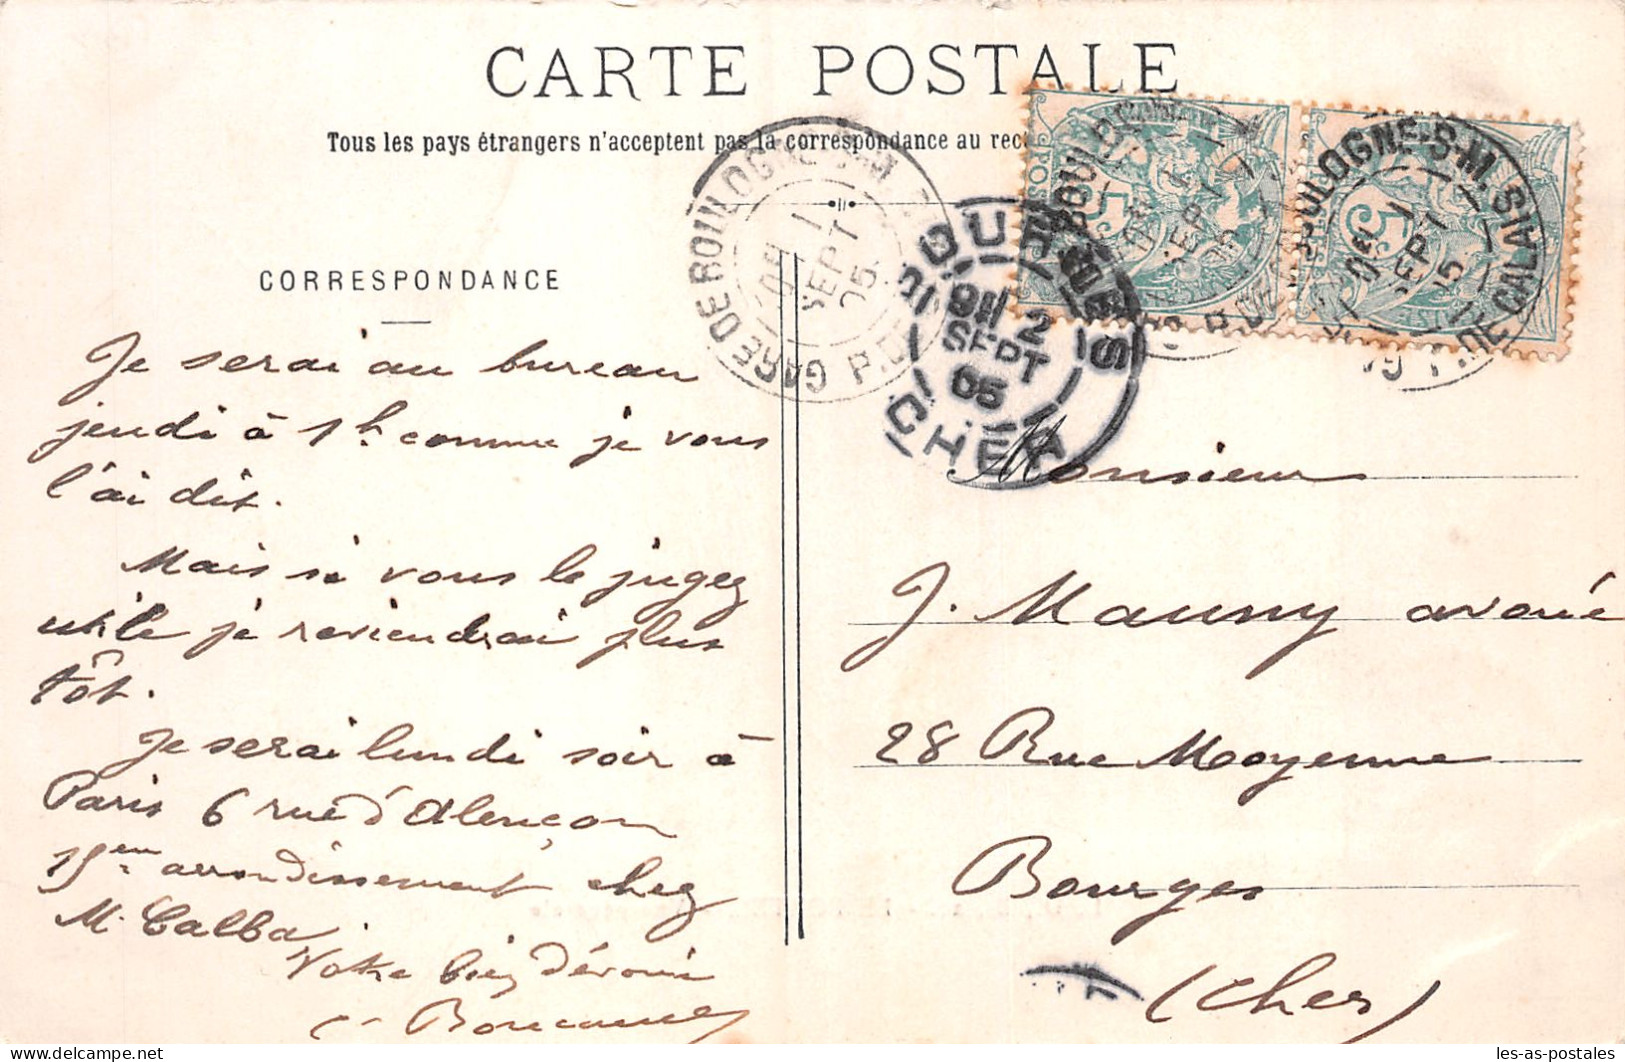 CARTE POSTALE
Tous les pays étrangers n'acceptent pas la correspondance au rec
CORRESPONDANCE
Je serai au bureau
jeudi à 1h comme je vous
l'ai dit.
Mais si vous le jugez
utile je reviendrai plus
tôt.
Je serai lundi soir à
Paris 6 rue d'Alençon
15em arrondissement chez
M. Calba
Votre bien dévoué
GARE DE BOULOGNE-S-M. P. DE CALAIS
1 SEPT 05
BOULOGNE-S-M.
SEPT 05
BOULOGNE-S-M. P. DE CALAIS
SEPT 05
5
5
BOURGES
2
SEPT
05
CHER
Monsieur
J. Mauny avoué
28 Rue Moyenne
Bourges
(Cher)
les-as-postales